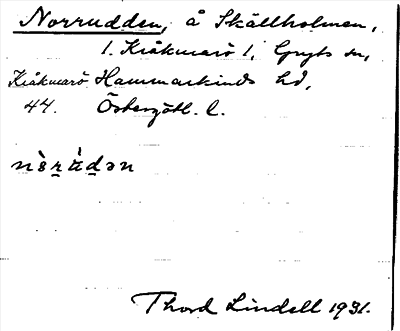 Norrudden, å Skällholmen,
1. Kråkmarö 1, Gryts sn,
Kråkmarö Hammarkinds hd,
44. Östergötl. l.
nȍrɑ̀dən
Thord Lindell 1931.